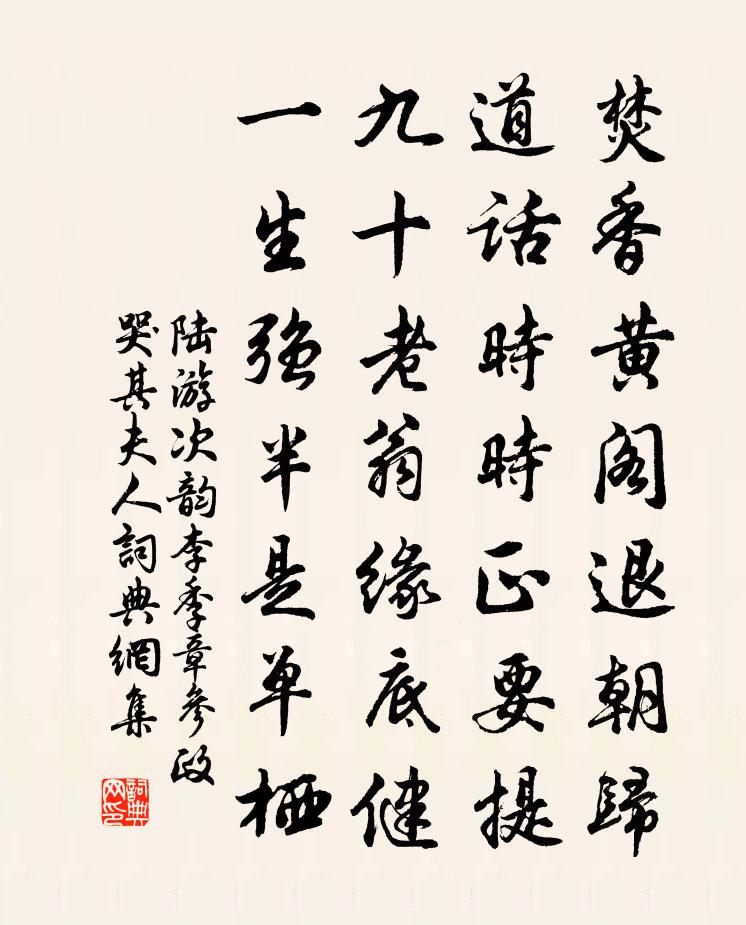 焚香黄阁退朝歸
道话時時正要提
九十老翁缘底健
一生强半是单栖
陆游次韵李季章参政
哭其夫人詞典網集
詞典网印